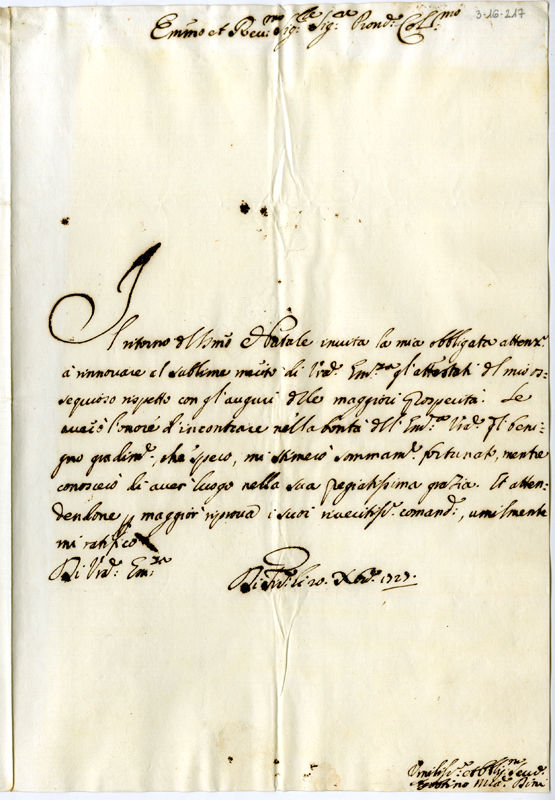 3-16-217
Emin̄o et Reu.mo Sig.re Sig.re Pron.e Coll.mo
Il ritorno del S.mo Natale inuita la mia obbligata attenz.e
à rinnouare al sublime merito di Vrã. Em.za gl'attestati del mio os-
sequioso rispetto con gl'auguri delle maggiori Prosperità. Se
auerò l'onore d'incontrare nella bontà dell'Em.za Vrã. Il beni-
gno gradim.o, che spero, mi stimerò sommam.e fortunato, mentre
conoscerò di auer luogo nella sua pregiatissima grazia. Et atten-
dendone p maggior riproua i suoi riueritiss.i comandi, umilmente
mi ratifico
Di Vrã. Em.za
Di 20. Xbre. 1727.
Umiliss.o et Obblig.mo Seru.e
Bini